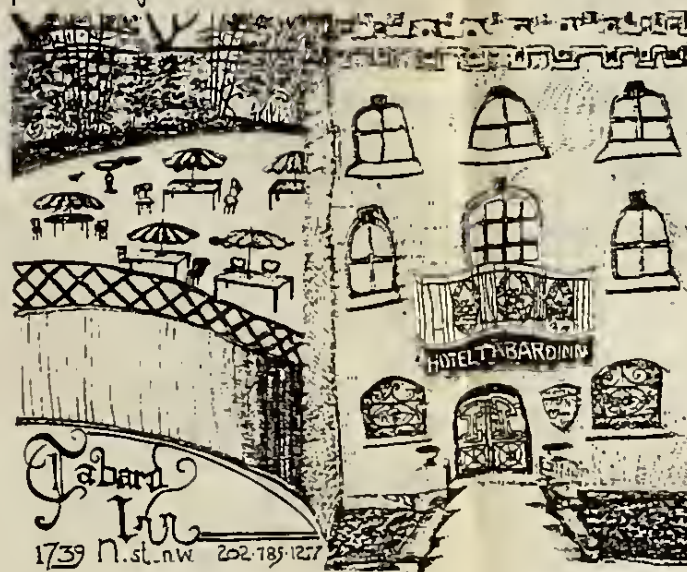 HOTEL TABARD INN
Tabard
Inn
1739 N.st.nw 202-785-1277